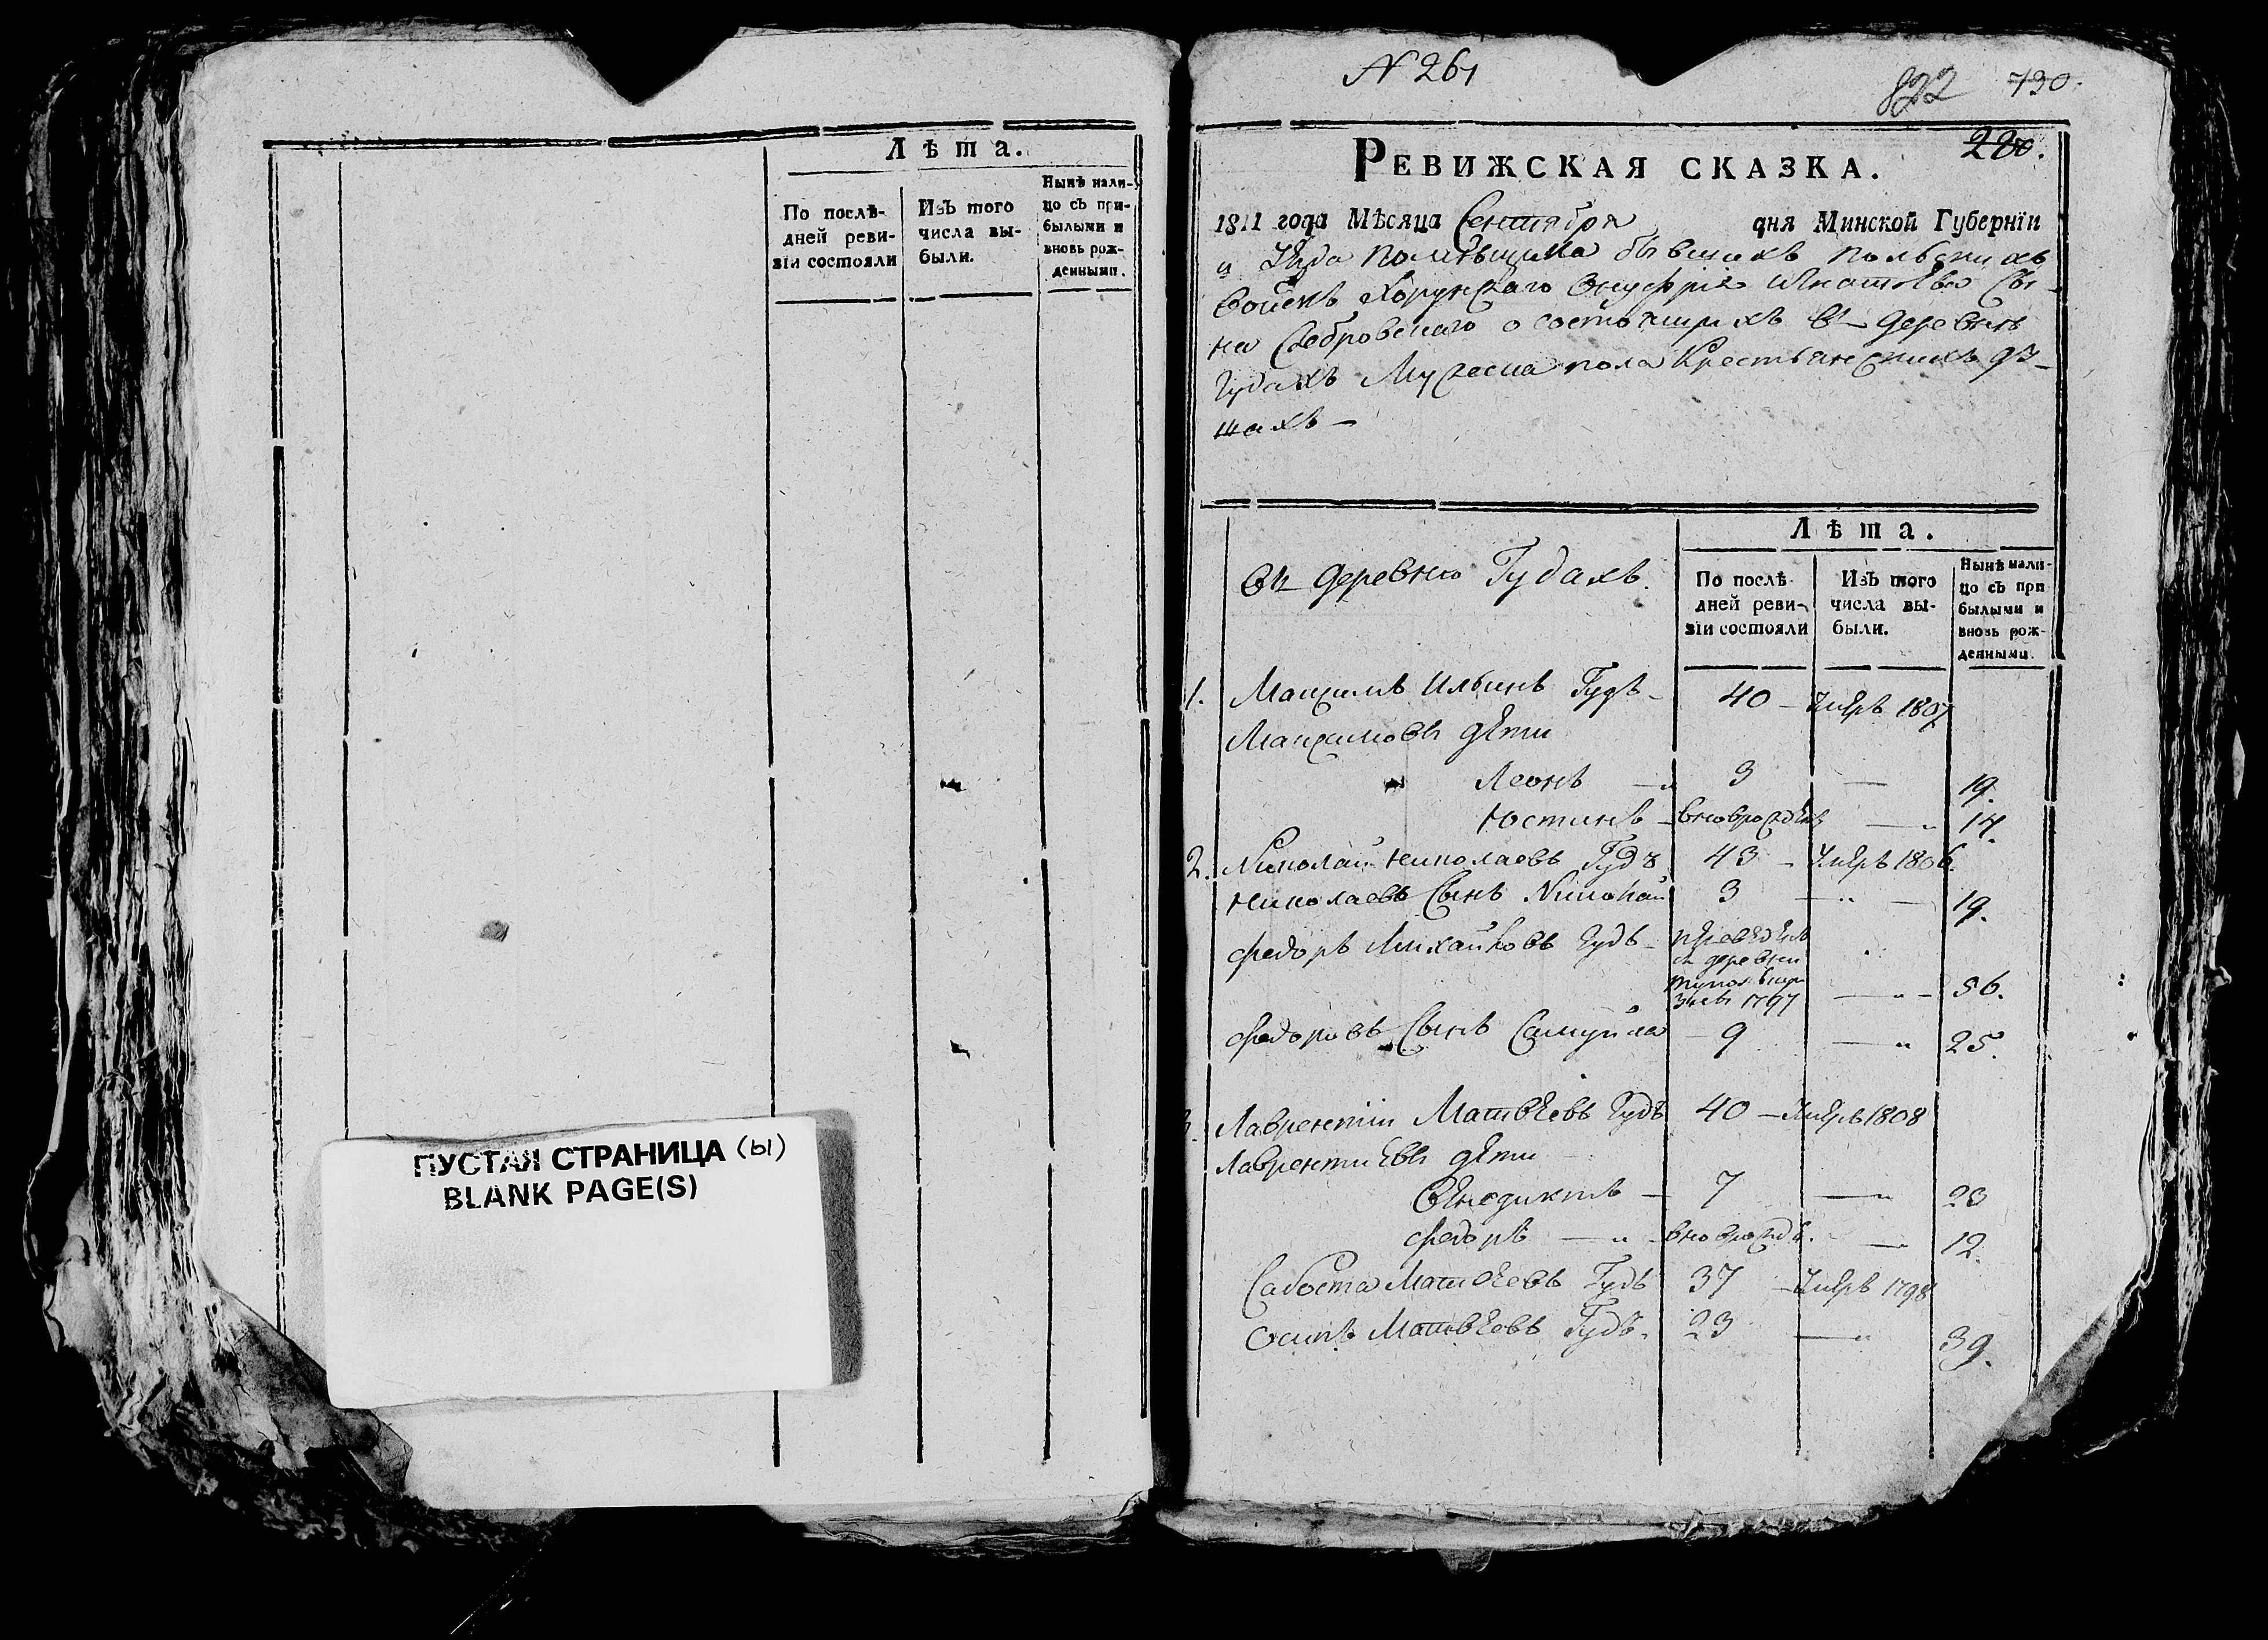 Лѣта.
По послѣ-
дней реви-
зіи состояли
Изъ того
числа вы-
были.
Нынѣ нали-
цо съ при-
былыми и
вновь рож-
денными.
ПУСТАЯ СТРАНИЦА (Ы)
BLANK PAGE(S)
N 261
822 730.
280.
РЕВИЖСКАЯ СКАЗКА.
1811 года Мѣсяца Сентября дня Минской Губерніи
и помѣщика бывшихъ польскихъ
войскъ Хорунжаго Онуфрія Игнатьева Сы-
на о состоящихъ въ деревнѣ
Гудахъ Мужеска пола Крестьянскихъ ду-
шахъ —
Лѣта.
въ деревнѣ Гудахъ.
По послѣ-
дней реви-
зіи состояли
Изъ того
числа вы-
были.
Нынѣ нали-
цо съ при
былыми и
вновь рож-
денными.
1. Максимъ Ильинъ Гудъ — 40 — Умеръ 1807
Максимовы дѣти
Леонъ — 3 — 19.
Юстинъ — вноврожден — 14.
2. Николай Николаевъ Гудъ 43 — Умеръ 1806.
Николаевъ Сынъ Николай 3 — 19.
Федоръ Михайловъ Гудъ — переведенъ
съ деревни
1797 — 56.
Федоровъ Сынъ Самуйла — 9 — 25.
3. Лаврентій Матвеевъ Гудъ 40 — Умеръ 1808
Лаврентиевы дети
Венедиктъ — 7 — 23
Федоръ — вноврожд. — 12.
Сабоста Матвеевъ Гудъ 37 — Умеръ 1798
Осипъ Матвеевъ Гудъ. 23 — 39.